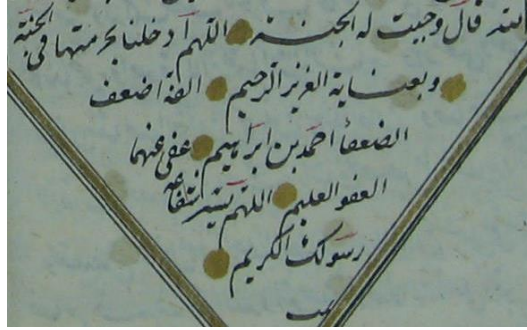 الله قال وجبت له الجنة اللهم ادخلنا بحرمتها فى الجنة
وبعناية العزيز الرحيم الفه اضعف
الضعفا احمد بن ابراهيم عفى عنهما
العفو العليم اللهم يسر شفاعه
رسولك الكريم